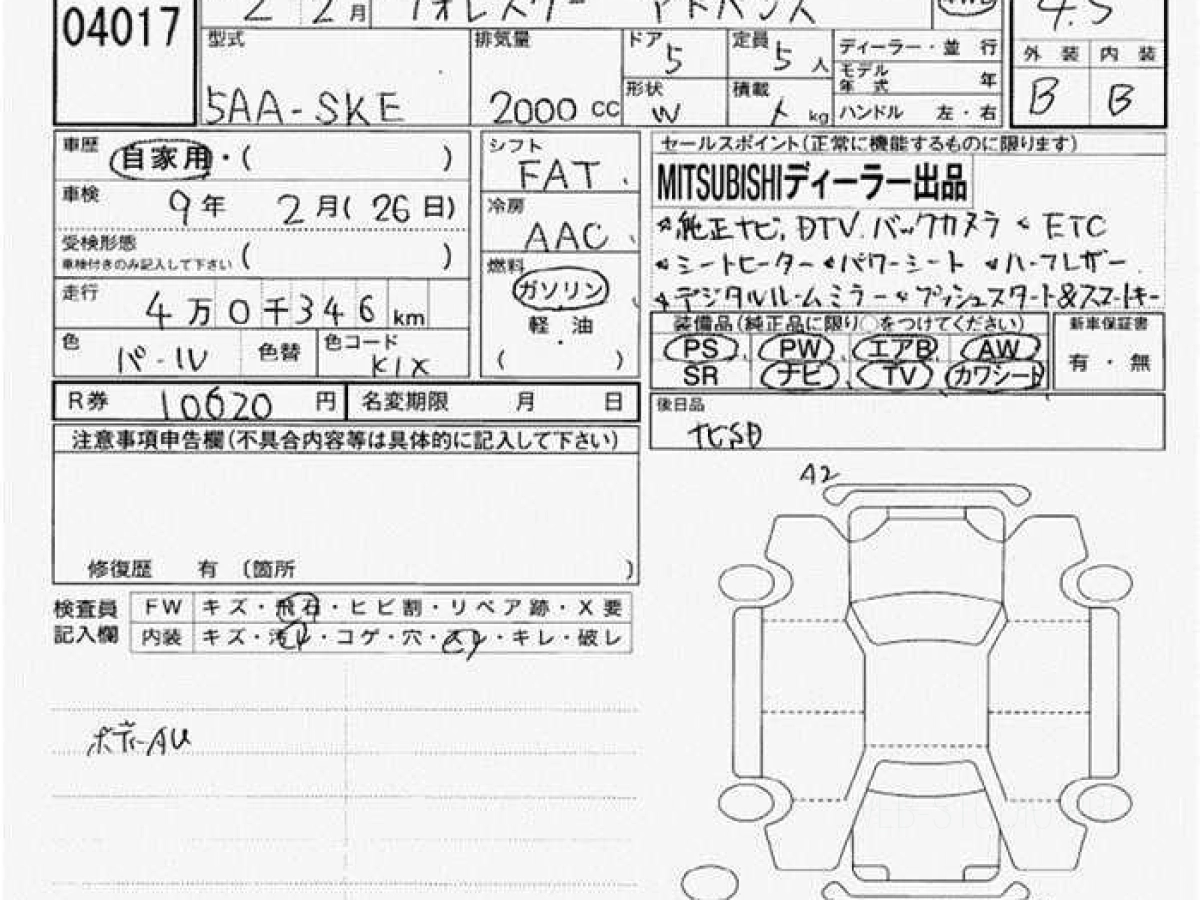 04017
2 2月 フォレスター アドバンス 4.5
型式 排気量 ドア 5 定員 5人 ディーラー・並行 外装 内装
モデル年式 年
5AA-SKE 2000 cc 形状 W 積載 kg ハンドル 左・右 B B
車歴 自家用・( )
車検 9年 2月(26日)
受検形態 ( )
車検付きのみ記入して下さい
走行 4万0千346km
色 パール 色替 色コード K1X
シフト FAT
冷房 AAC
燃料 ガソリン
・
軽油
( )
セールスポイント(正常に機能するものに限ります)
MITSUBISHIディーラー出品
純正ナビ, DTV. バックカメラ ETC
シートヒーター パワーシート ハーフレザー
デジタルルームミラー プッシュスタート&スマートキー
装備品(純正品に限り○をつけてください) 新車保証書
PS PW エアB AW 有・無
SR ナビ TV カワシート
R券 10620円 名変期限 月 日
後日品
ナビSD
注意事項申告欄(不具合内容等は具体的に記入して下さい)
修復歴 有 〔箇所 〕
検査員記入欄 FW キズ・飛石・ヒビ割・リペア跡・X要
内装 キズ・汚レ・コゲ・穴・スレ・キレ・破レ
ボディーAU
A2